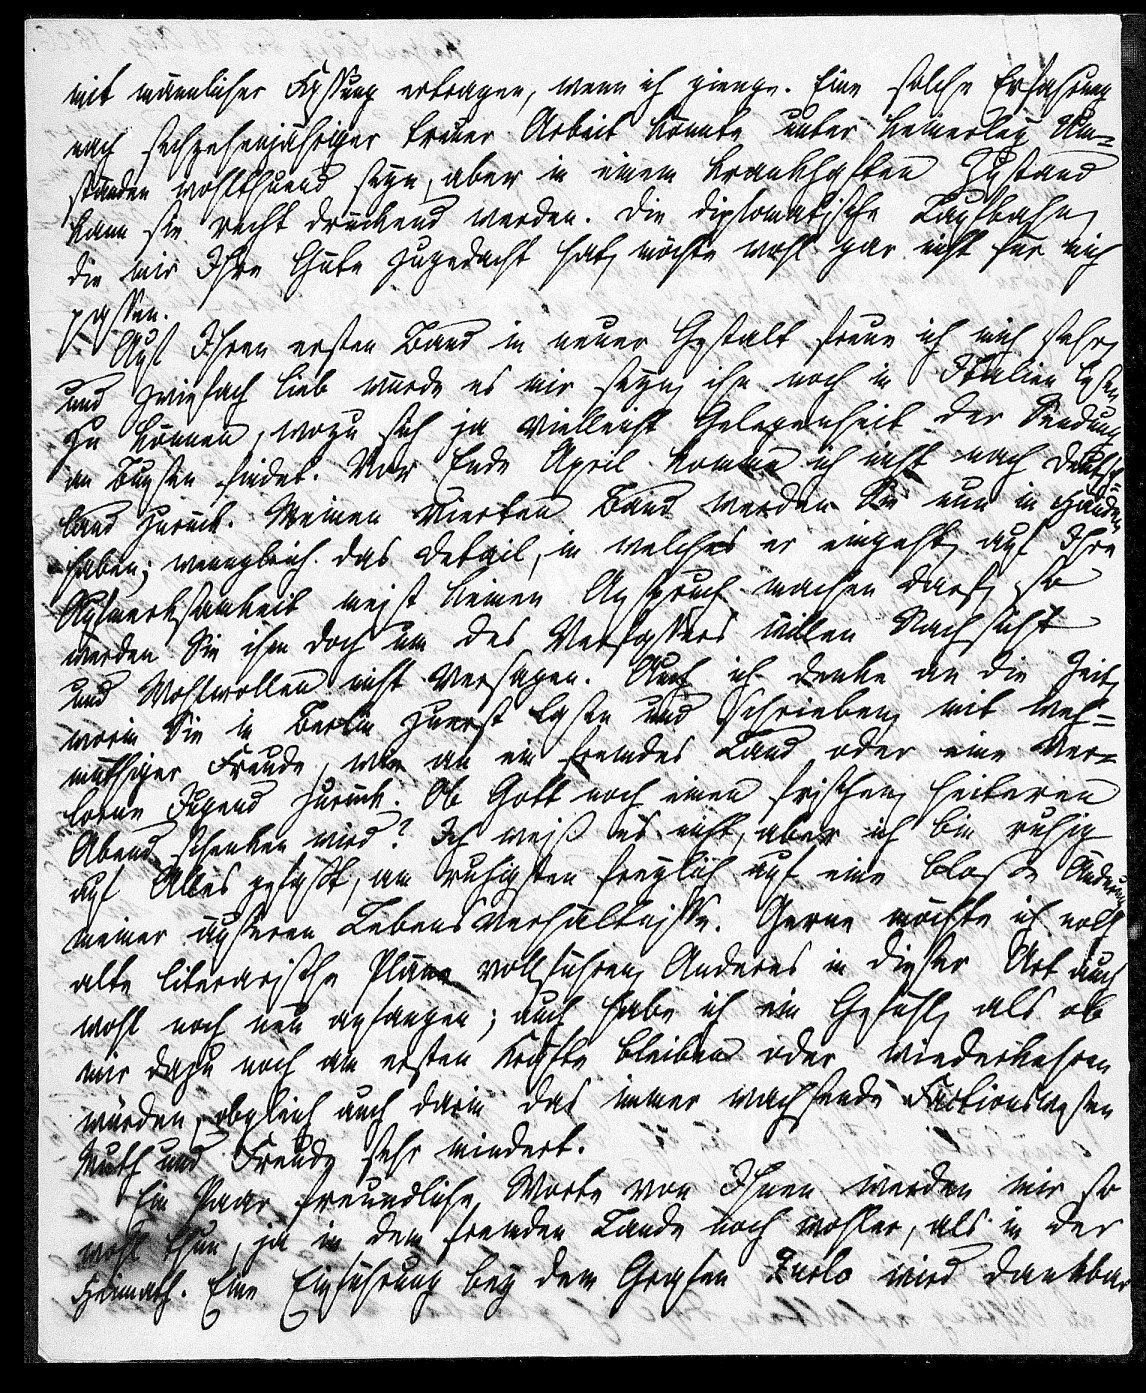 mit männlicher Fassung ertragen, wenn ich gienge. Eine solche Erfahrung
nach sechzehenjähriger treuer Arbeit könnte unter keinerley Um-
ständen wohlthuend seyn, aber in einem krankhaften Zustand
kann sie recht drückend werden. Die diplomatische Laufbahn,
die mir Ihre Güte zugedacht hat, möchte wohl gar nicht für mich
passen.
Auf Ihren ersten Band in neuer Gestalt freue ich mich sehr,
und zwiefach lieb würde es mir seyn, ihn noch in Italien lesen
zu können, wozu sich ja vielleicht Gelegenheit der Sendung
an Bunsen findet. Vor Ende April komme ich nicht nach Deutsch-
land zurück. Meinen vierten Band werden Sie nun in Händen
haben; wenngleich das Detail, in welches er eingeht, auf Ihre
Aufmerksamkeit meist keinen Anspruch machen darf, so
werden Sie ihm doch um des Verfassers willen Nachsicht
und Wohlwollen nicht versagen. Auch ich denke an die Zeit,
worin Sie in Berlin zuerst lasen und schrieben, mit weh-
müthiger Freude, wie an ein fremdes Land oder eine ver-
lorne Jugend zurück. Ob Gott noch einen frischen, heiteren
Abend schenken wird? Ich weiß es nicht, aber ich bin ruhig
auf Alles gefaßt, am ruhigsten freylich auf eine bloße Änderung
meiner äußeren Lebensverhältnisse. Gerne möchte ich noch
alte literarische Pläne vollführen, Anderes in dieser Art auch
wohl noch neu anfangen; auch habe ich ein Gefühl, als ob
mir dazu noch am ersten Kräfte bleiben oder wiederkehren
würden, obgleich auch darin das immer wachsende Factionswesen
Muth und Freude sehr mindert.
Ein Paar freundliche Worte von Ihnen werden mir so
wohl thun, ja in dem fremden Lande noch wohler, als in der
Heimath. Eine Einführung bey dem Grafen Zurlo wird dankbar